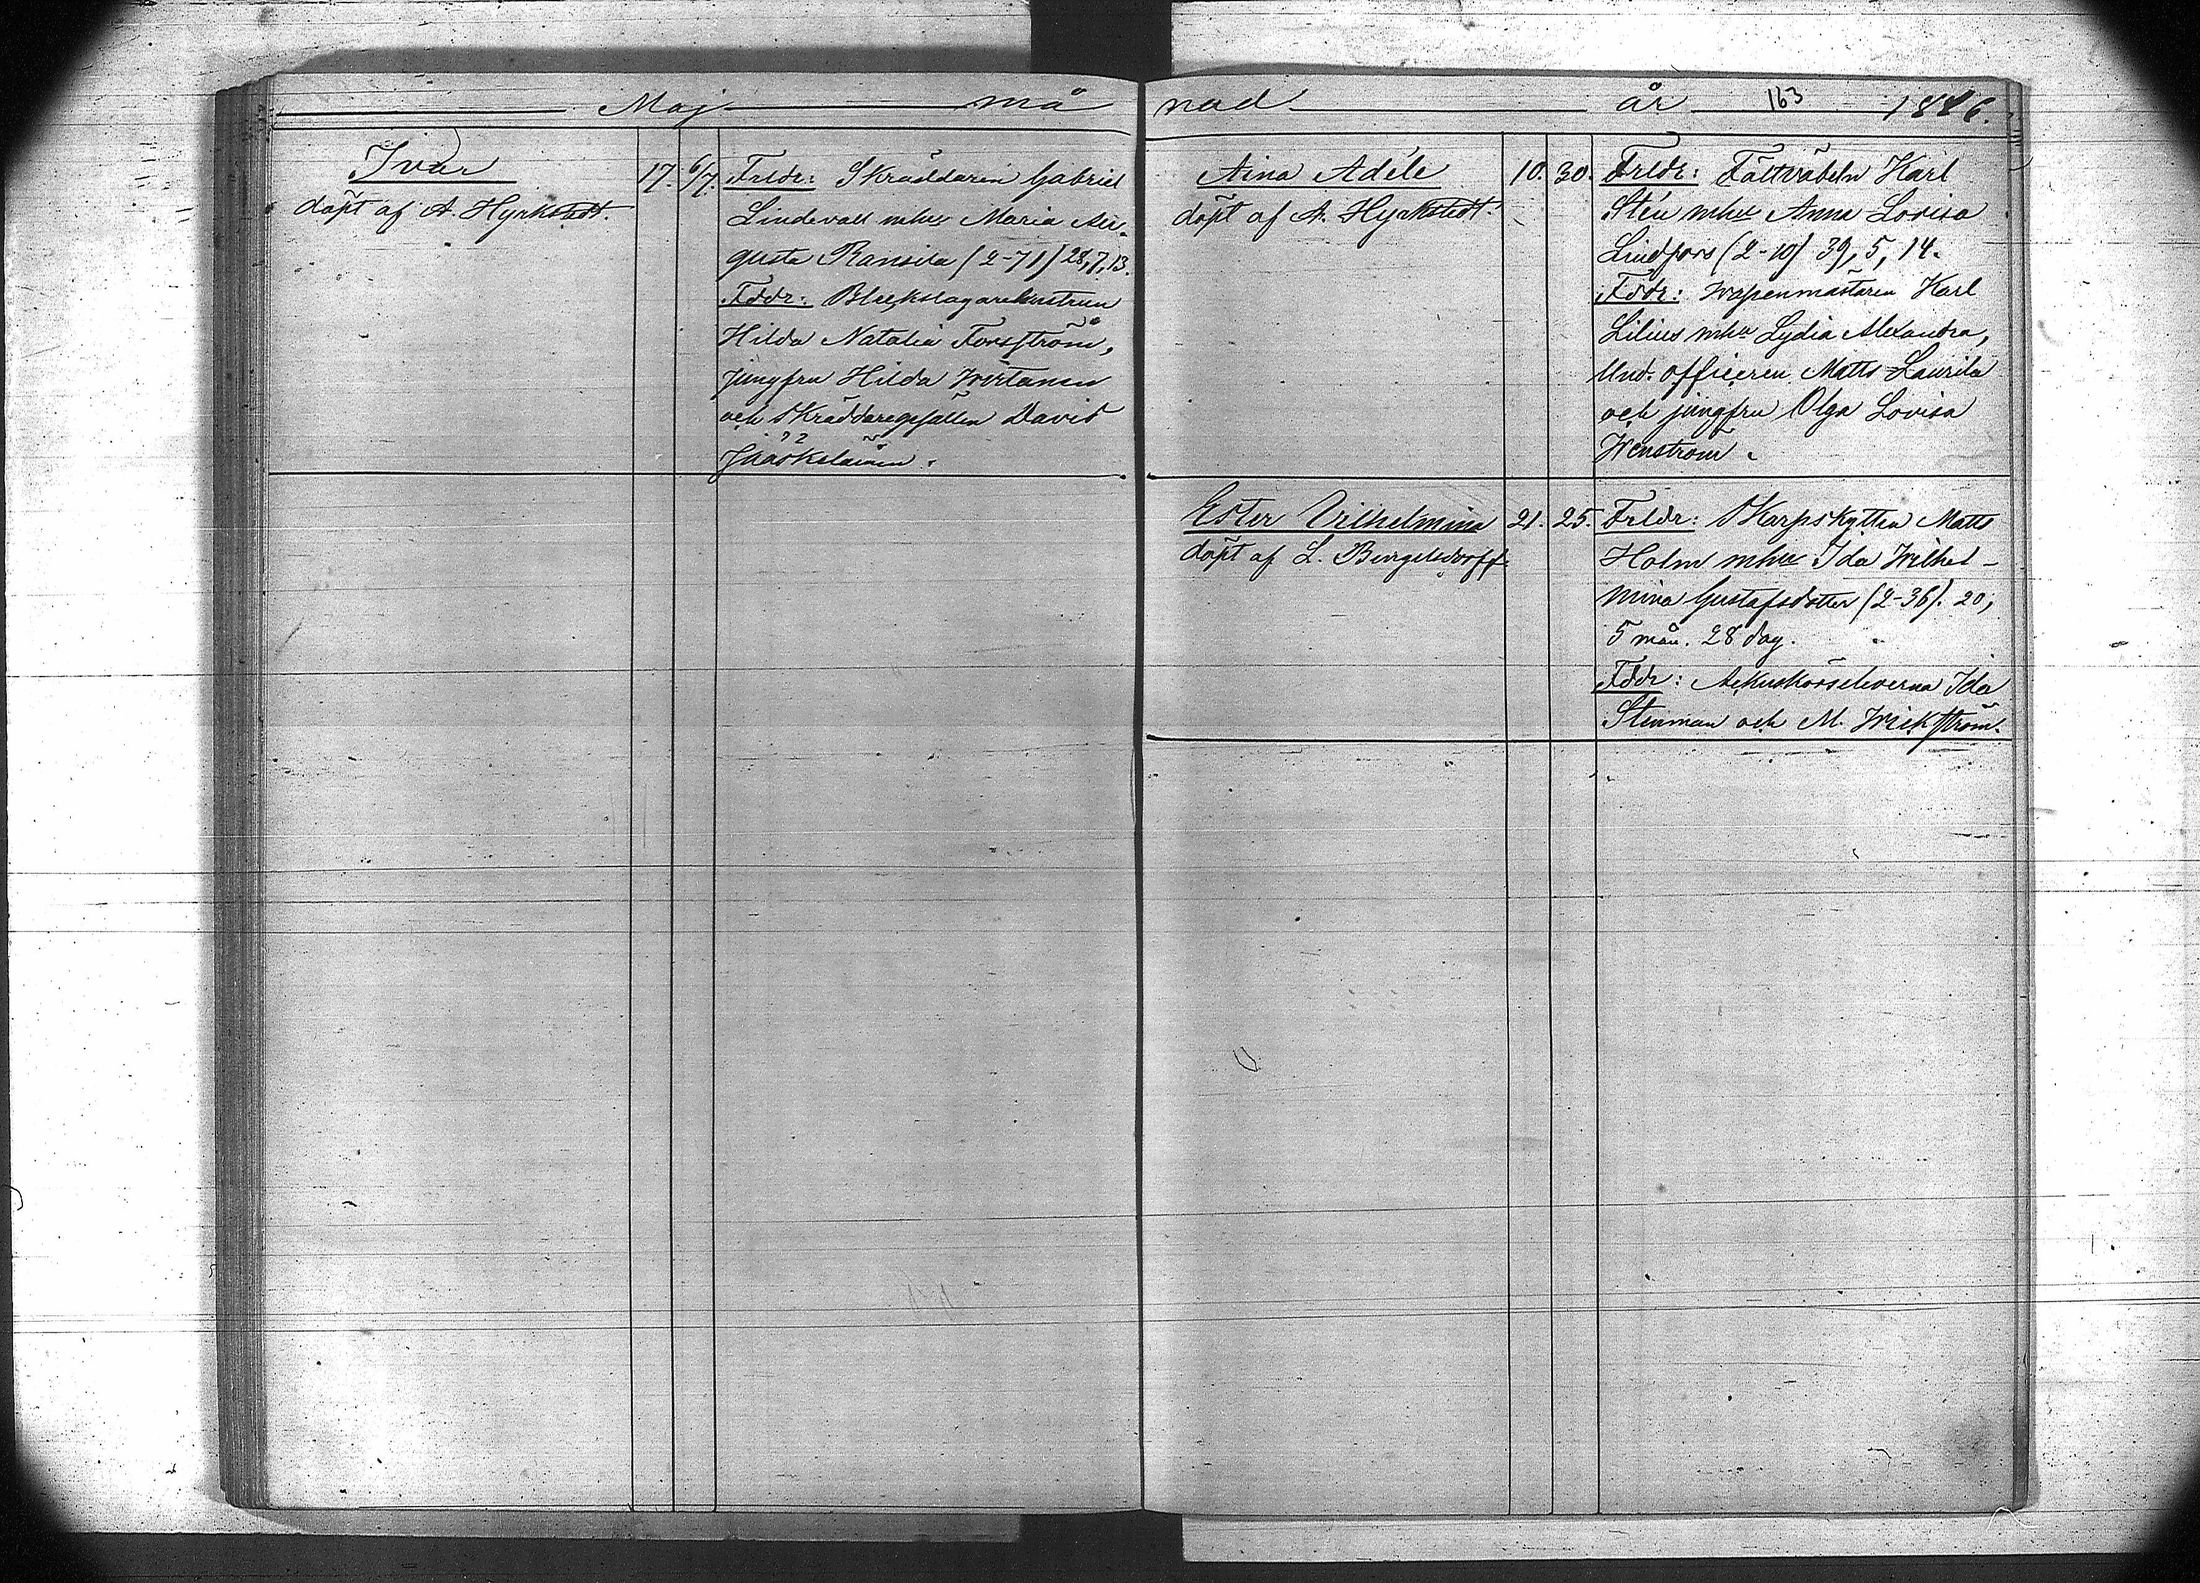 Maj må
Ivar
döpt af A. Hyrkstedt.
17. 6/7.
Frldr: Skräddaren Gabriel
Lindevall mhu Maria Au-
gusta Ransila (2-71) 28, 7, 13.
Fddr: Bleckslagarehustrun
Hilda Natalia Forsström,
jungfru Hilda Wirtanen
och skräddaregesällen David
Jääskeläinen.
nad år 163 1886.
Aina Adéle
döpt af A. Hyrkstedt.
10. 30.
Frldr: Fältväbeln Karl
Stén mhu Anna Lovisa
Lindfors (2-10) 39, 5, 14.
Fddr: Wapenmästaren Karl
Lilius mhu Lydia Alexandra,
Und. officeren Matts Laurila
och jungfru Olga Lovisa
Wenström.
Ester Vilhelmina
döpt af L. Bergelsdorff.
21. 25.
Frldr: Skarpskytten Matts
Holm mhu Ida Wilhel-
mina Gustafsdotter (2-36). 20,
5 mån. 28 dag.
Fddr: Ida
Stenman och M. Wickström.